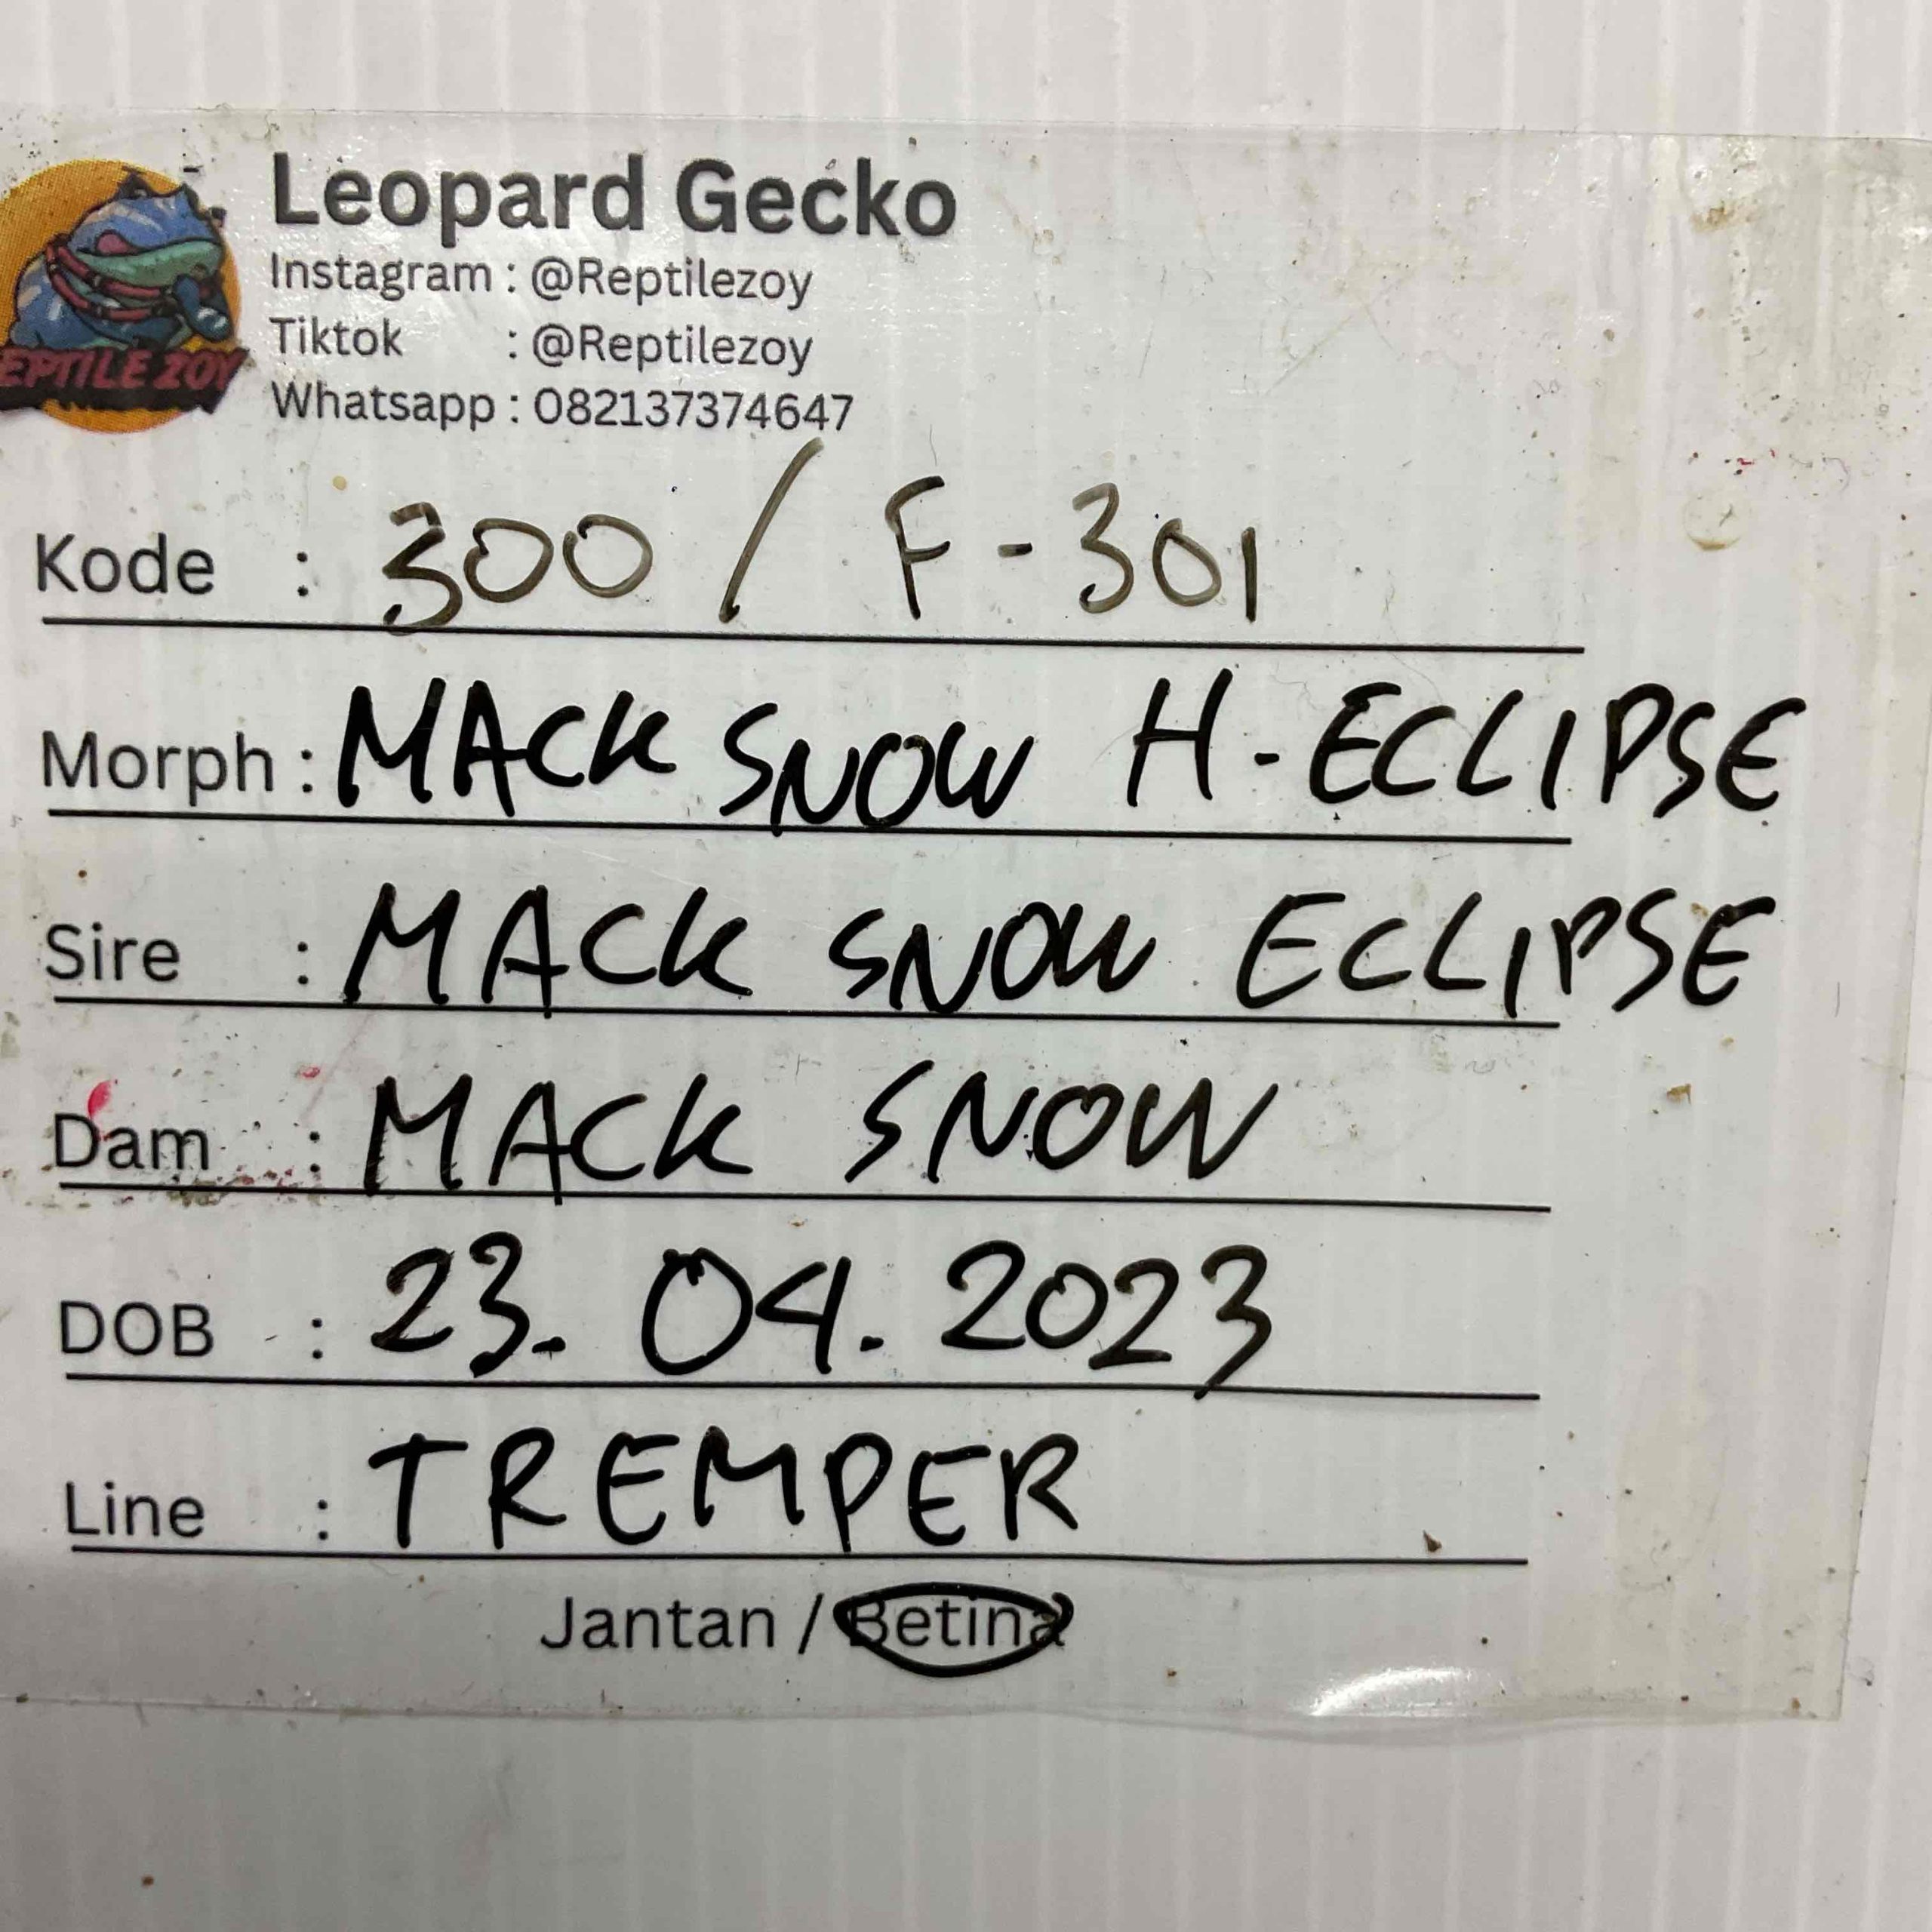 Leopard Gecko
Instagram : @Reptilezoy
Tiktok : @Reptilezoy
Whatsapp : 082137374647
EPTILE ZOY
Kode : 300 / F - 301
Morph : MACK SNOW H-ECLIPSE
Sire : MACK SNOW ECLIPSE
Dam : MACK SNOW
DOB : 23. 04. 2023
Line : TREMPER
Jantan / Betina